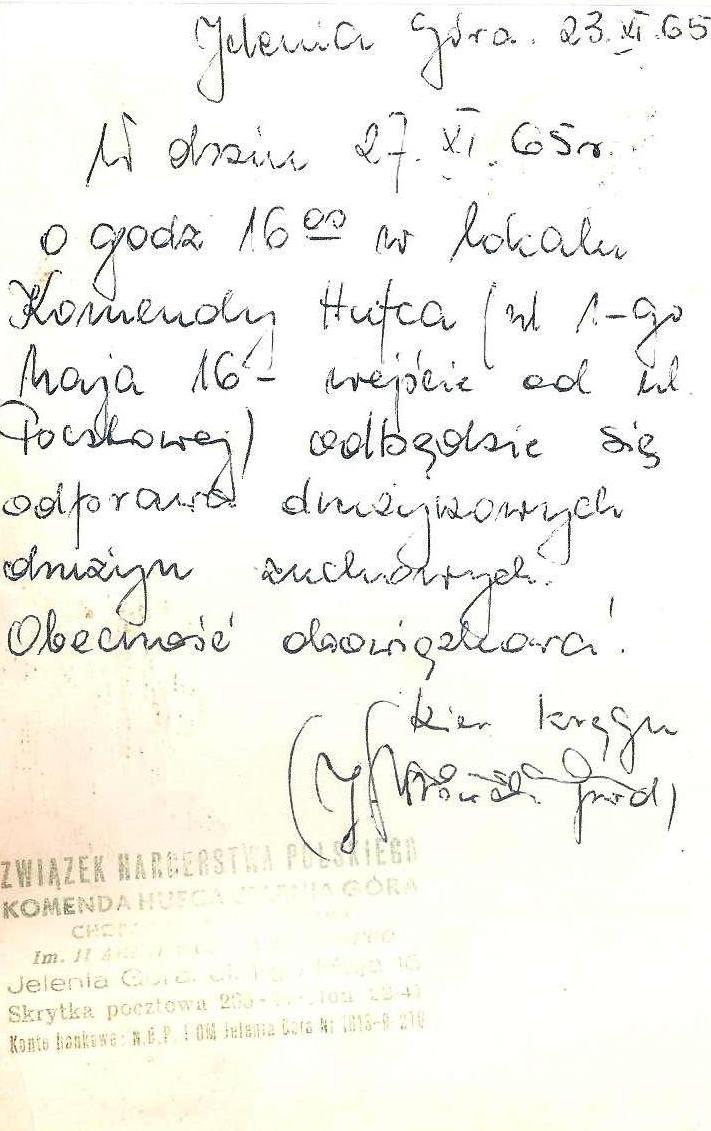 Jelenia Góra. 23.XI.65
W dniu 27.XI.65r.
o godz 16 00 w lokalu
Komendy Hufca (ul 1-go
Maja 16 - wejście od ul.
Pocztowej) odbędzie się
odprawa drużynowych
drużyn zuchowych.
Obecność obowiązkowa!
kier kręgu
ZWIĄZEK HARCERSTWA POLSKIEGO
KOMENDA HUFCA JELENIA GÓRA
Im. II
Jelenia Góra, ul. 1-go Maja 16
Skrytka pocztowa
Konto bankowe: N.B.P. I OM Jelenia Góra Nr